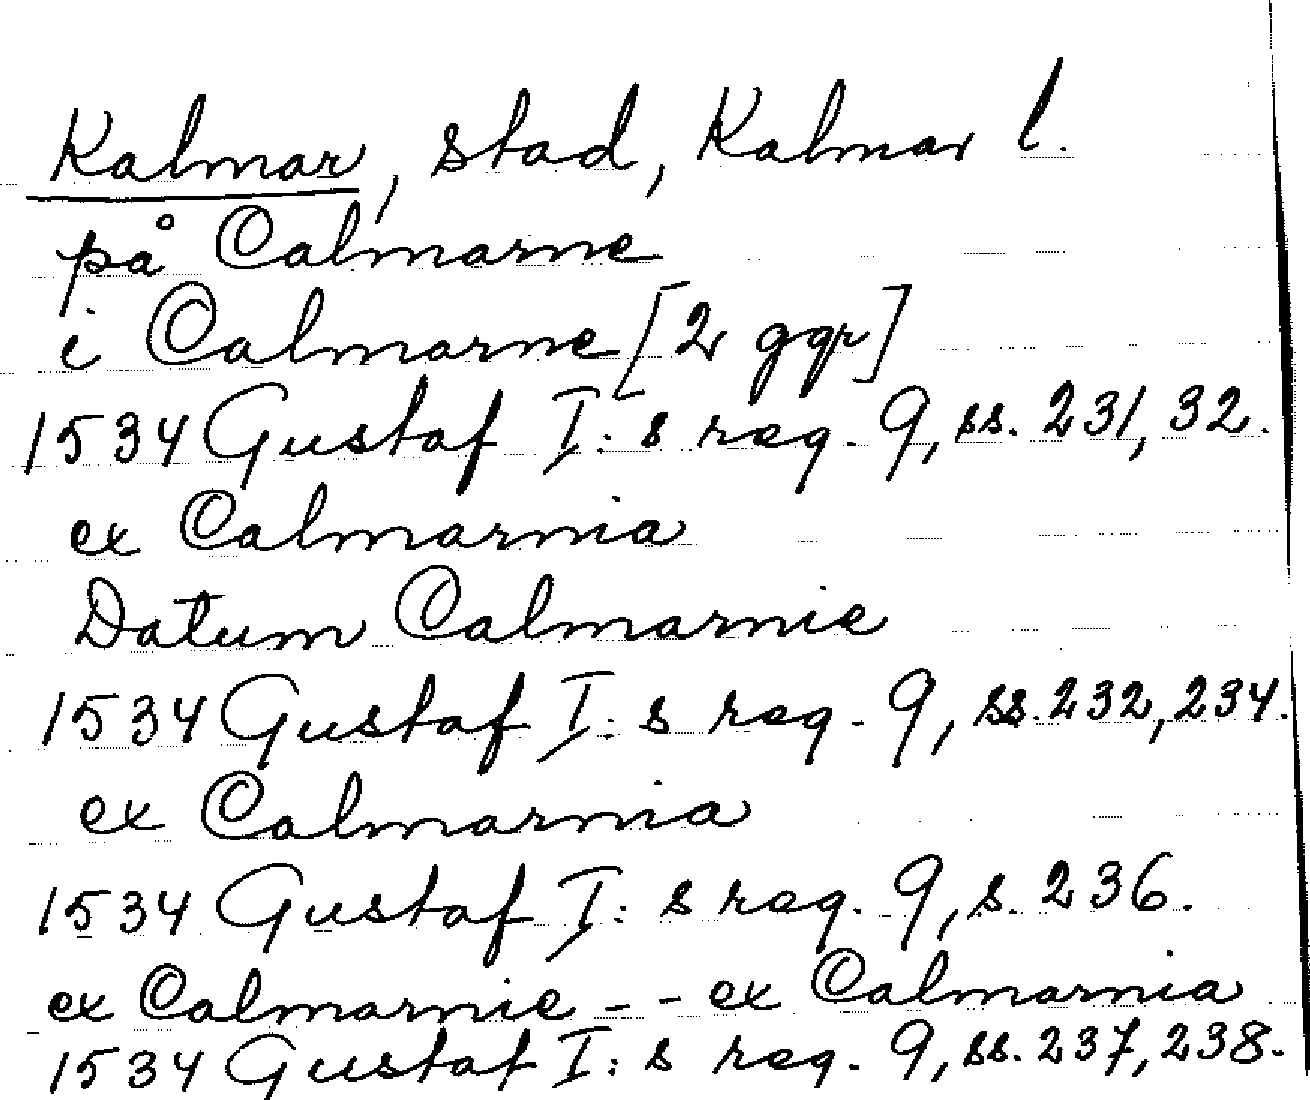 Kalmar, stad, Kalmar l.
på Calmarne
i Calmarne [2 ggr]
1534 Gustaf I:s reg. 9, ss. 231, 32.
ex Calmarnia
Datum Calmarnie
1534 Gustaf I:s reg. 9, ss. 232, 234.
ex Calmarnia
1534 Gustaf I:s reg. 9, s. 236.
ex Calmarnie - - ex Calmarnia
1534 Gustaf I:s reg. 9, ss. 237, 238.